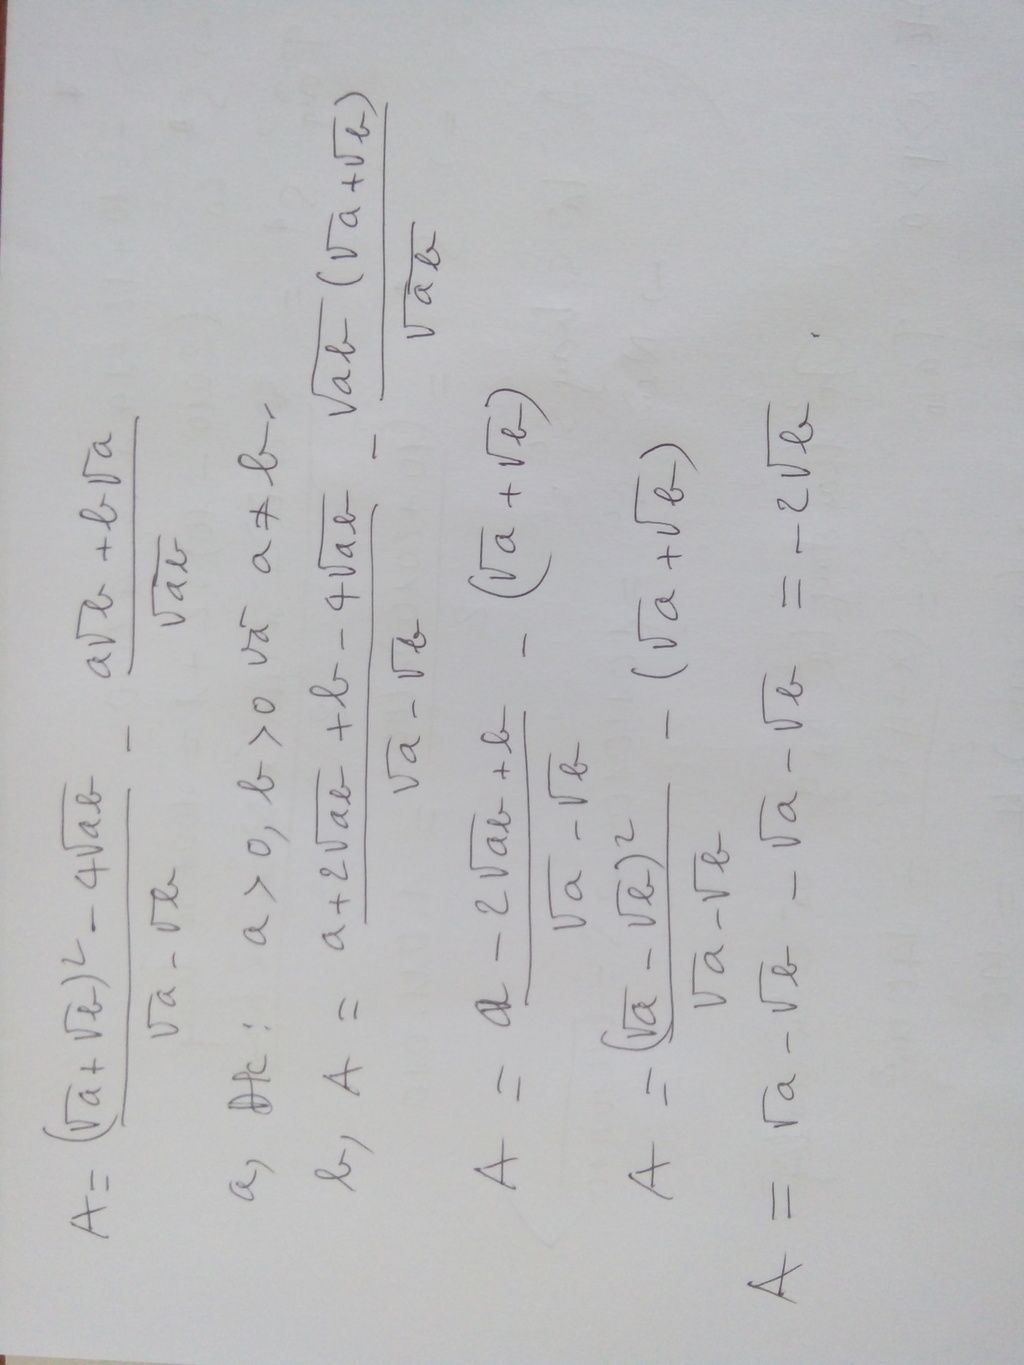 A = \frac{(√a + √b)² - 4√ab}{√a - √b} - \frac{a√b + b√a}{√ab}
a, Đk: a > 0, b > 0 và a ≠ b.
b, A = \frac{a + 2√ab + b - 4√ab}{√a - √b} - \frac{√ab (√a + √b)}{√ab}
A = \frac{a - 2√ab + b}{√a - √b} - (√a + √b)
A = \frac{(√a - √b)²}{√a - √b} - (√a + √b)
A = √a - √b - √a - √b = -2√b.